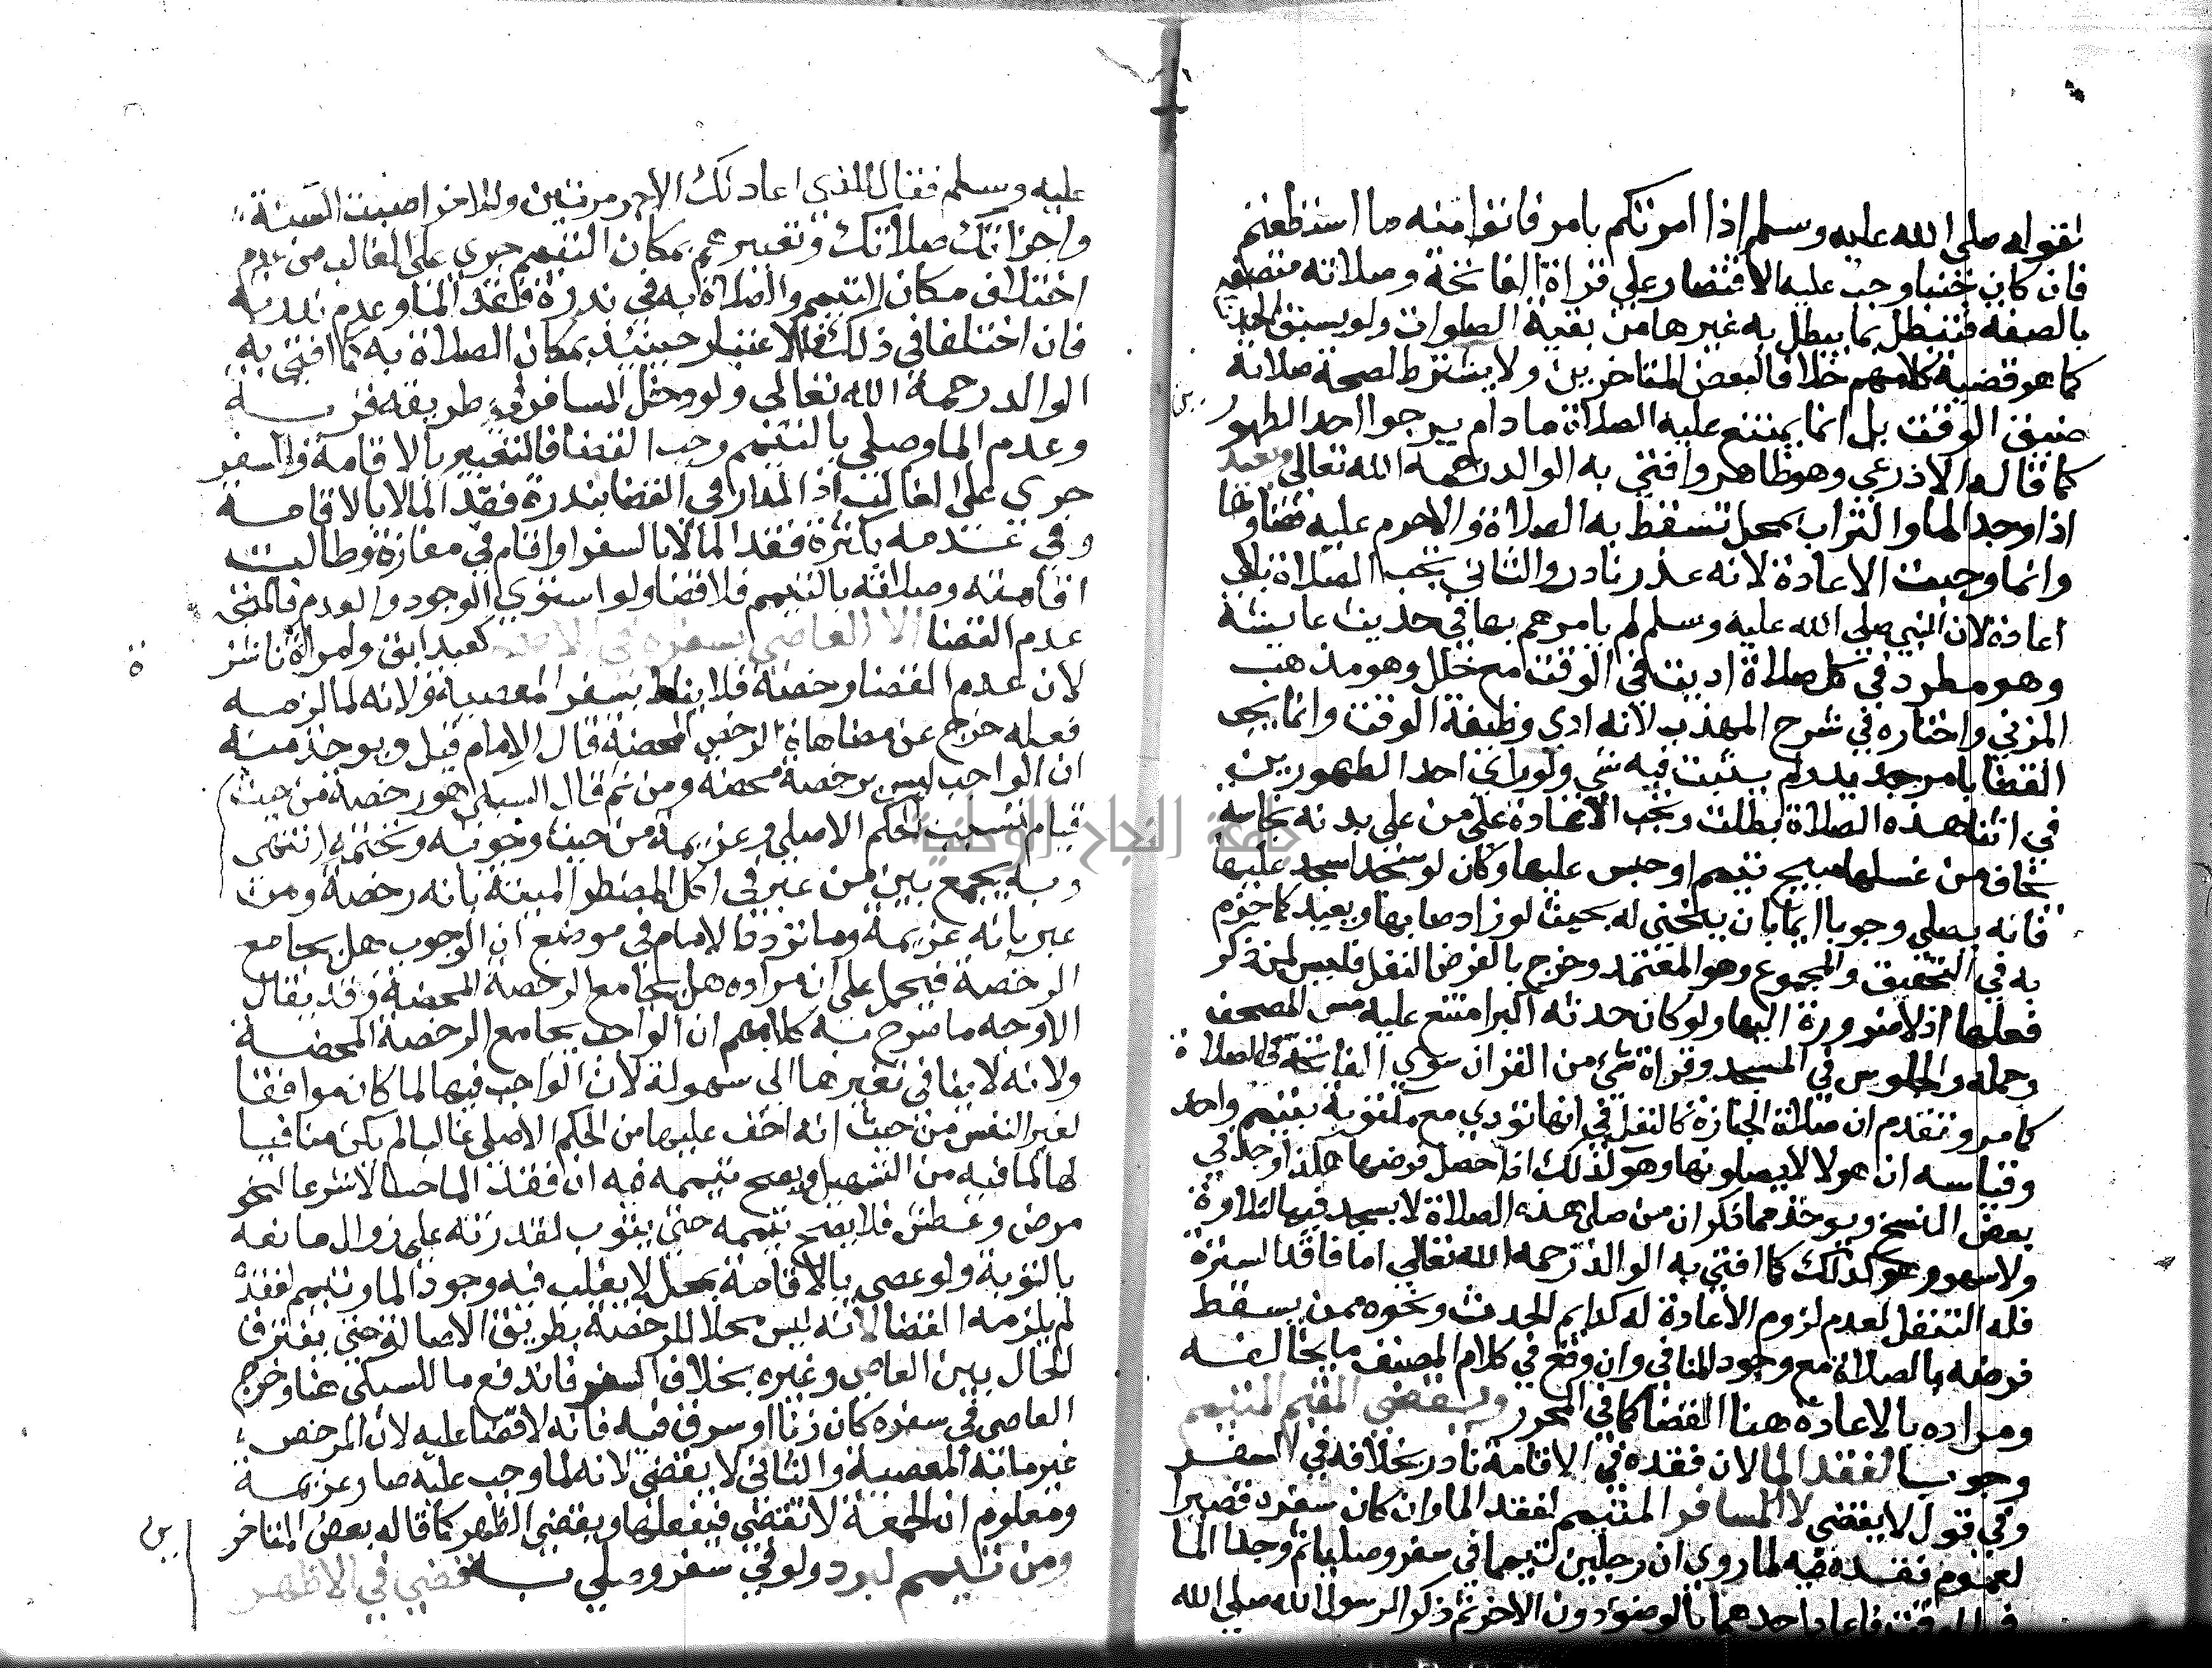 لقوله صلى الله عليه وسلم إذا امرتكم بامر فاتوا منه ما استطعتم
فان كان جنبا وجب عليه الاقتصار على قراة الفاتحة وصلاته متصفة
بالصفة فتبطل بما يبطل به غيرها من بقية الصلوات ولو بسبق الحدث
كما هو قضية كلامهم خلافا لبعض المتاخرين ولا يشترط لصحة صلاته
ضيق الوقت بل انما يمتنع عليه الصلاة ما دام يرجوا احد الطهور
ين
كما قاله الاذرعي وهو ظاهر وافتى به الوالد رحمه الله تعالى ويعيد
اذا وجد الما والتراب بمحل تسقط به الصلاة والا حرم عليه قضاوها
وانما وجبت الاعادة لانه عذر نادر والثاني تجب الصلاة بلا
اعادة لان النبي صلى الله عليه وسلم لم يامرهم بها في حديث عايشة
وهو مطرد في كل صلاة اديت في الوقت مع خلل وهو مذهب
المزني واختاره في شرح المهذب لانه ادى وظيفة الوقت وانما يجب
القضا بامر جديد ولم يثبت فيه شي ولو راى احد الطهورين
في اثنا هذه الصلاة بطلت وتجب الاعادة على من على بدنه نجاسة
يخاف من غسلها مبيح تيمم او حبس عليها وكان لو سجد لسجد عليها
فانه يصلي وجوبا ايما بان ينحني له بحيث لو زاد صابها ويعيد كما جزم
به في التحقيق والمجموع وهو المعتمد وخرج بالفرض النفل فليس لمن ذكر
فعلها اذ لا ضرورة اليها ولو كان حدثه اكبر امتنع عليه مس المصحف
وحمله والجلوس في المسجد وقراة شي من القران سوى الفاتحة في الصلاة
كما مر وتقدم ان صلاة الجنازة كالنفل في انها تودي مع مكتوبة بتيمم واحد
وقياسه ان هولا لا يصلونها وهو كذلك اذا حصل فرضها هكذا وجد في
بعض النسخ ويوخذ مما ذكر ان من صلى هذه الصلاة لا يسجد فيها لتلاوة
ولا سهو وهو كذلك كما افتى به الوالد رحمه الله تعالى اما فاقد السترة
فله التنفل لعدم لزوم الاعادة له كدايم الحدث ونحوه ممن يسقط
فرضه بالصلاة مع وجود المنافي وان وقع في كلام المصنف ما يخالفه
ومراده بالاعادة هنا القضا كما في المحرر ويقضي المقيم المتيمم
وجوبا لفقد الما لان فقده في الاقامة نادر بخلافه في السفر
وفي قول لا يقضي لا المسافر المتيمم لفقد الما وان كان سفره قصيرا
لعموم فقده فيه لما روي ان رجلين تيمما في سفر وصليا ثم وجدا الما
في الوقت فاعاد احدهما بالوضوء دون الاخر ثم ذكرا لرسول الله صلى الله
عليه وسلم فقال للذي اعاد لك الاجر مرتين وللاخر اصبت السنة
واجزاتك صلاتك وتعبيرهم بمكان التيمم جرى على الغالب من عدم
اختلاف مكان التيمم والصلاة به في ندرة فقد الما وعدم ندرته
فان اختلفا في ذلك فالاعتبار حينئذ بمكان الصلاة به كما افتى به
الوالد رحمه الله تعالى ولو دخل المسافر في طريقه قرية
وعدم الما وصلى بالتيمم وجب القضا فالتعبير بالاقامة والسفر
جرى على الغالب اذ المدار في القضا بندرة فقد الما لا بالاقامة
وفي عدمه بكثرة فقد الما لا بالسفر او اقام في مفازة وطالت
اقامته وصلاته بالتيمم فلا قضا ولو استوى الوجود والعدم فالمتجه
عدم القضا الا العاصي بسفره في الاصح كعبد ابق وامراة ناشز
ة
لان عدم القضا رخصة فلا يناط بسفر المعصية ولانه لما لزمه
فعله خرج عن مضاهاة الرخص المحضة قال الامام قيل ويوخذ منه
ان الواجب ليس برخصة محضة ومن ثم قال السبكي هو رخصة من حيث
قيام السبب للحكم الاصلي وعزيمة من حيث وجوبه وتحتمه انتهى
وبه يجمع بين من عبر في اكل المضطر الميتة بانه رخصة ومن
عبر بانه عزيمة وما تردد الامام في موضع ان الوجوب هل يجامع
الرخصة فيحمل على ان مراده هل يجامع الرخصة المحضة وقد يقال
الاوجه ما صرح به كلامهم ان الواجب يجامع الرخصة المحضة
ولانه لا ينافي تغيرها الى سهولة لان الواجب فيها لما كان موافقا
لغير النفس من حيث انه اخف عليها من الحكم الاصلي غالبا لم يكن منافيا
لها لما فيه من التسهيل ويصح تيممه فيه ان فقد الما حسا لا شرعا لنحو
مرض وعطش فلا يصح تيممه حتى يتوب لقدرته على زوال مانعه
بالتوبة ولو عصى بالاقامة بمحل لا يغلب فيه وجود الما وتيمم لفقده
لم يلزمه القضا لانه ليس محلا للرخصة بطريق الاصالة حتى يفترق
الحال بين العاصي وغيره بخلاف السفر فاندفع ما للسبكي هنا وخرج
العاصي في سفره كان زنا او سرق فيه فانه لا قضا عليه لان المرخص
غير ما به المعصية والثاني لا يقضي لانه لما وجب عليه صار عزيمة
ومعلوم ان الجمعة لا تقضى فيفعلها ويقضي الظهر كما قاله بعض المتاخر
ين
ومن تيمم لبرد ولو في سفر وصلى به قضى في الاظهر
جامعة النجاح الوطنية